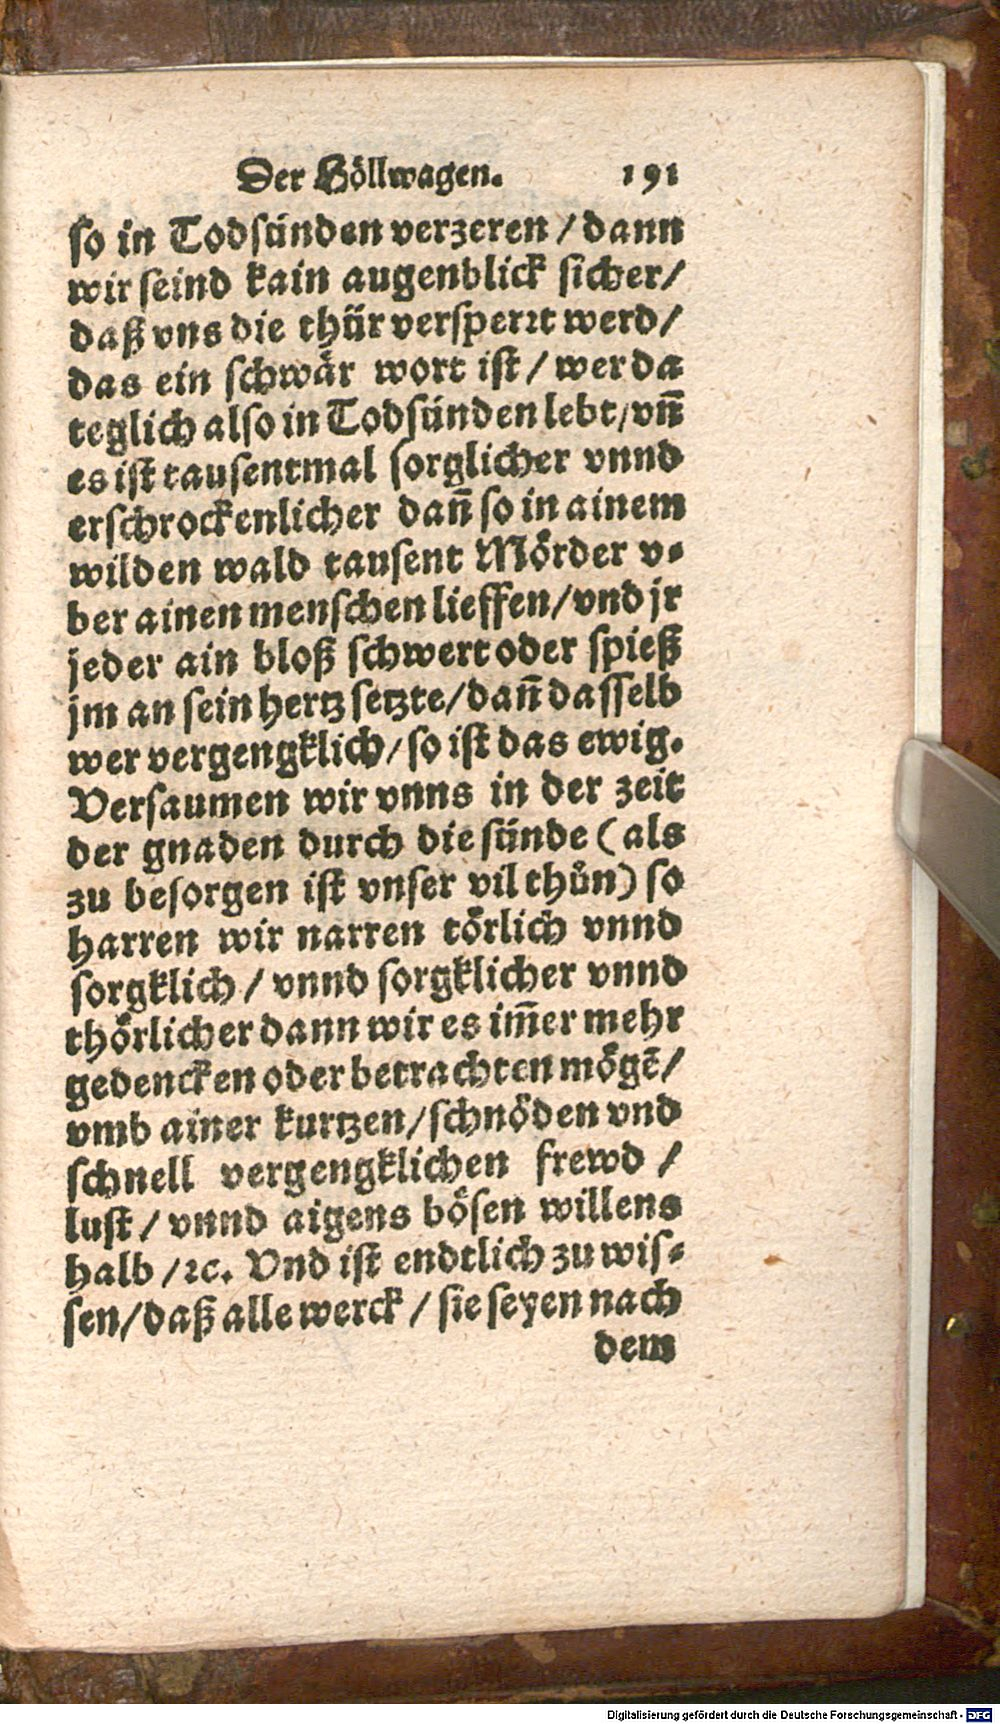 Der Höllwagen. 191
so in Todsünden verzeren / dann
wir seind kain augenblick sicher/
daß vns die thür versperꝛt werd/
das ein schwår wort ist / wer da
teglich also in Todsünden lebt/vñ
es ist tausentmal sorglicher vnnd
erschrockenlicher dañ so in ainem
wilden wald tausent Mörder v-
ber ainen menschen lieffen/vnd jr
jeder ain bloß schwert oder spieß
jm an sein hertz setzte/dañ dasselb
wer vergengklich/so ist das ewig.
Versaumen wir vnns in der zeit
der gnaden durch die sünde (als
zu besorgen ist vnser vil thůn) so
harren wir narren törlich vnnd
sorgklich / vnnd sorgklicher vnnd
thörlicher dann wir es im̃er mehr
gedencken oder betrachten mögẽ/
vmb ainer kurtzen/schnöden vnd
schnell vergengklichen frewd /
lust / vnnd aigens bösen willens
halb /ꝛc. Vnd ist endtlich zu wis-
sen/daß alle werck / sie seyen nach
dem
Digitalisierung gefördert durch die Deutsche Forschungsgemeinschaft - DFG